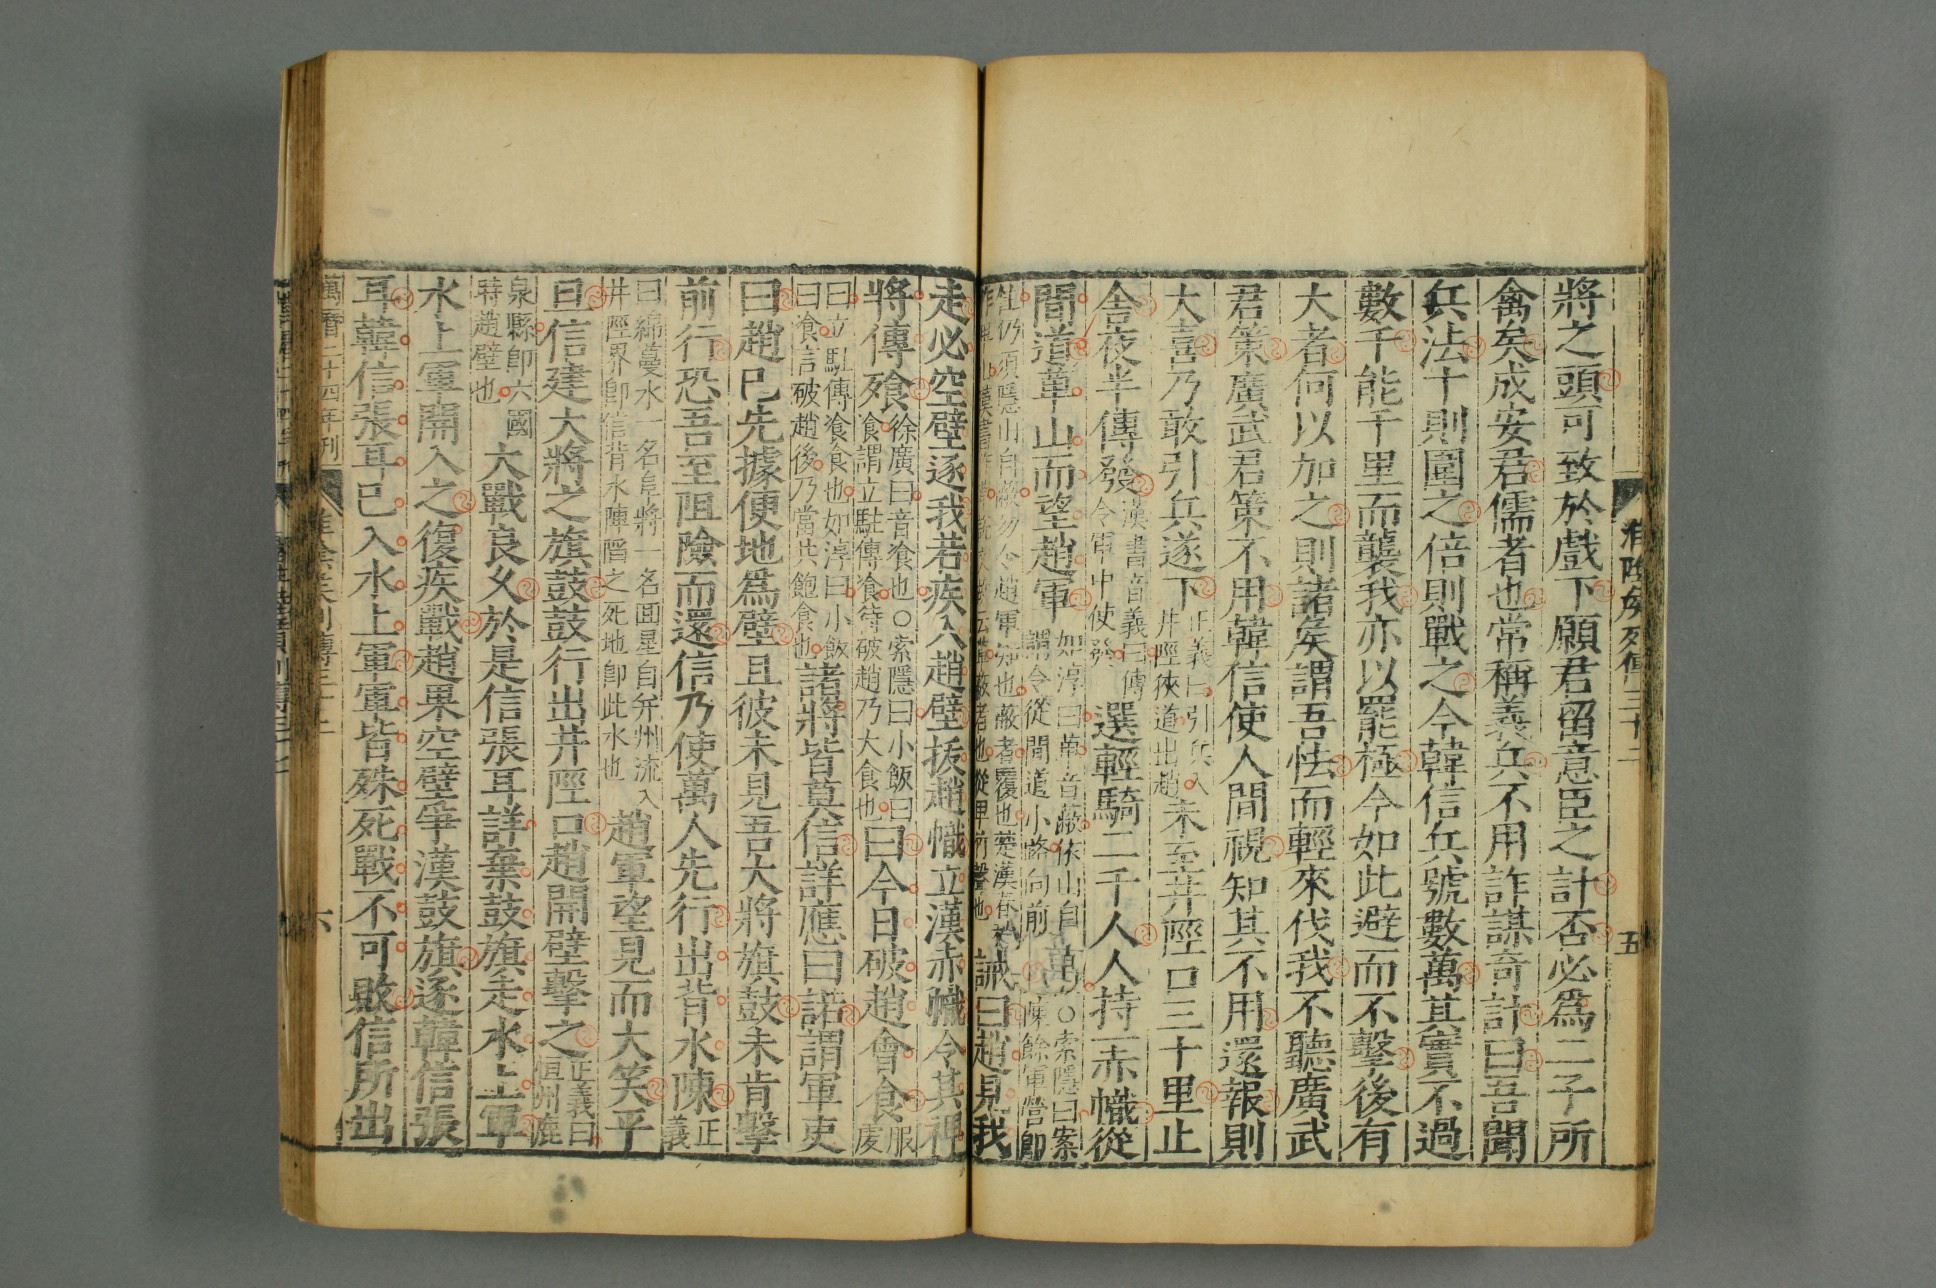 將之頭可致於戲下願君留意臣之計否必爲二子所
禽矣成安君儒者也常稱義兵不用詐謀奇計曰吾聞
兵法十則圍之倍則戰之今韓信兵號數萬其實不過
數千能千里而襲我亦以罷極今如此避而不擊後有
大者何以加之則諸矦謂吾怯而輕來伐我不聽廣武
君策廣武君策不用韓信使人間視知其不用還報則
大喜乃敢引兵遂下正義曰引兵入井陘狹道出趙未至井陘口三十里止
舍夜半傳發漢書音義曰傳令軍中使發選輕騎二千人人持一赤幟從
間道萆山而望趙軍如淳曰萆音蔽依山自覆○索隱曰案謂令從間道小路向前陳餘軍營卽
仍須隱山自蔽勿令趙軍知也蔽者覆也楚漢春秋誡曰趙見我
走必空壁逐我若疾入趙壁拔趙幟立漢赤幟令其裨
將傳飱徐廣曰音飡也○索隱曰小飯曰飡謂立駐傳飡待破趙乃大食也曰今日破趙會食服虔
曰立駐傳飡食也如淳曰小飯曰飡言破趙後乃當共飽食也諸將皆莫信詳應曰諾謂軍吏
曰趙已先據便地爲壁且彼未見吾大將旗鼓未肯擊
前行恐吾至阻險而還信乃使萬人先行出背水陳正義
曰綿蔓水一名阜將一名回星自幷州流入井陘界卽信背水陣陷之死地卽此水也趙軍望見而大笑平
旦信建大將之旗鼓鼓行出井陘口趙開壁擊之正義曰恒州鹿
泉縣卽六國時趙壁也大戰良久於是信張耳詳棄鼓旗走水上軍
水上軍開入之復疾戰趙果空壁爭漢鼓旗逐韓信張
耳韓信張耳已入水上軍軍皆殊死戰不可敗信所出
萬曆二十四年刊
淮陰矦列傳三十二
六
淮陰矦列傳三十二
五